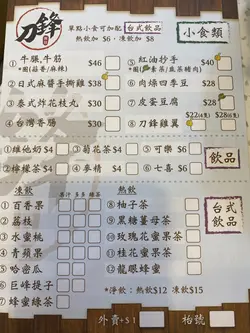 刀鋒
單點小食可加配 台式飲品
熱飲加 $6，凍飲加 $8
小食類
① 牛𦟌,牛筋 $46
*圖(蒜香/麻辣)
⑤ 紅油抄手 $40
② 日式麻醬手撕雞 $40
⑥ 肉燥四季豆 $38
③ 泰式炸花枝丸 $30
⑦ 皮蛋豆腐 $28
④ 台灣香腸 $30
⑧ 刀鋒雞翼
$22 $28
① 維他奶 $4
③ 菊花茶 $4
⑤ 可樂 $6
② 檸檬茶 $4
④ 麥精 $4
⑥ 七喜 $6
飲品
凍飲
熱飲
台式飲品
① 百香果
② 荔枝
③ 水蜜桃
④ 青蘋果
⑤ 哈密瓜
⑥ 巨峰提子
⑦ 蜂蜜綠茶
⑧ 柚子茶
⑨ 黑糖薑母茶
⑩ 玫瑰花蜜果茶
⑪ 桂花蜜果茶
⑫ 龍眼蜂蜜
*淨飲：熱飲$12 凍飲$15
外賣+$1
枱號